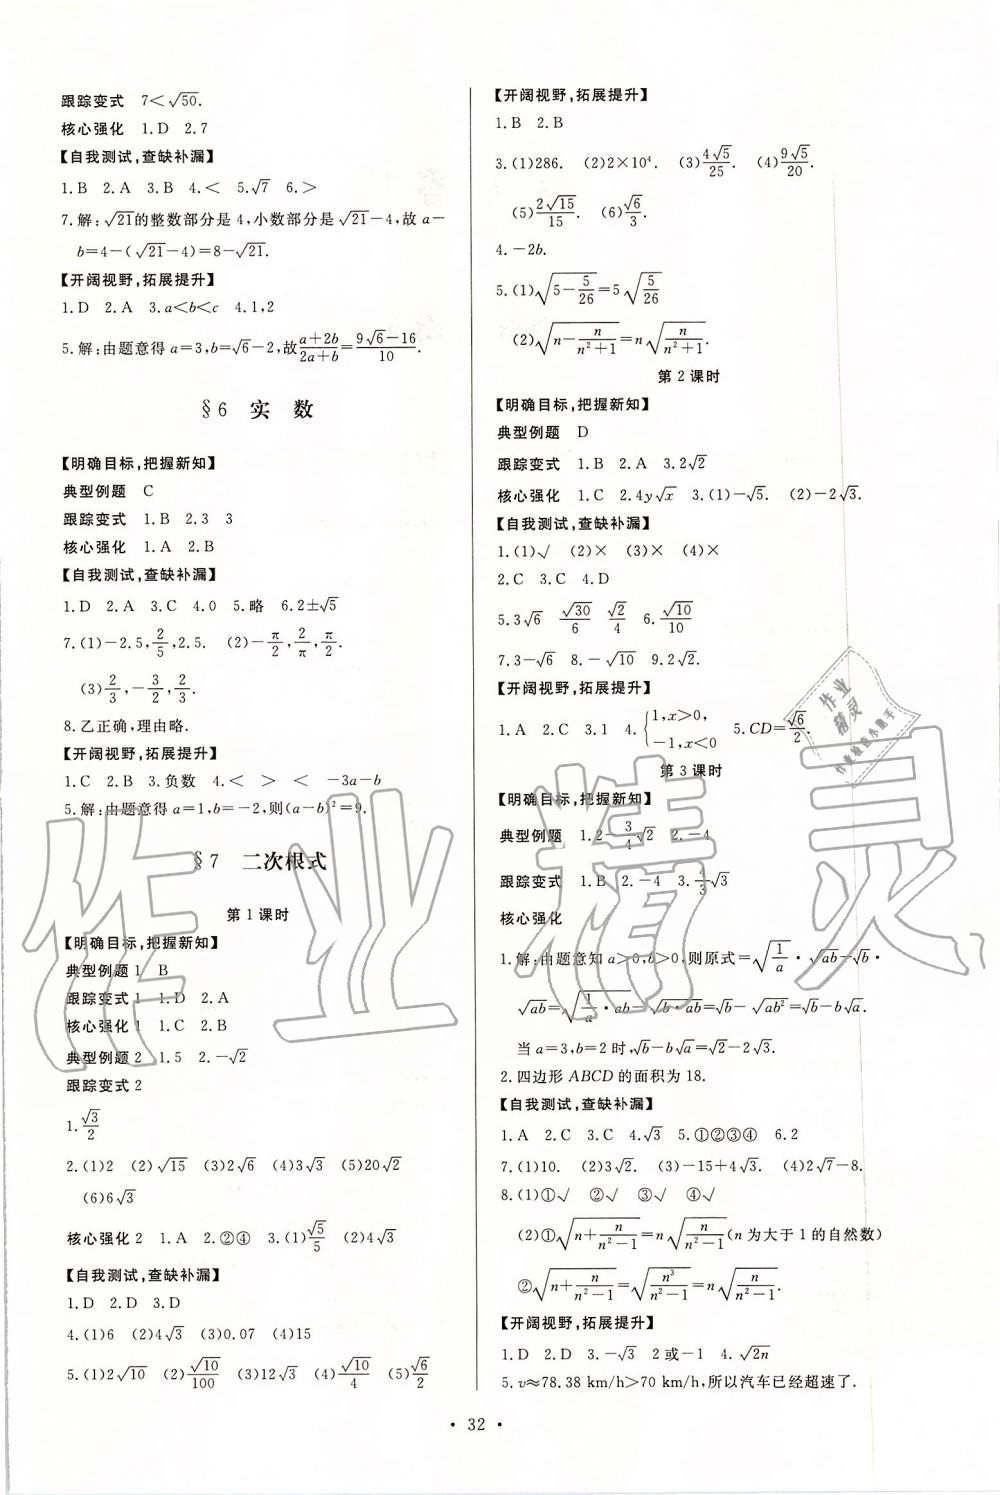 跟踪变式 7<√50.
核心强化 1.D 2.7
【自我测试,查缺补漏】
1.B 2.A 3.B 4.< 5.√7 6.>
7.解:√21的整数部分是 4,小数部分是√21-4,故 a-
b=4-(√21-4)=8-√21.
【开阔视野,拓展提升】
1.D 2.A 3.a<b<c 4.1,2
5.解:由题意得 a=3,b=√6-2,故(a+2b)/(2a+b)=(9√6-16)/10.
§6 实 数
【明确目标,把握新知】
典型例题 C
跟踪变式 1.B 2.3 3
核心强化 1.A 2.B
【自我测试,查缺补漏】
1.D 2.A 3.C 4.0 5.略 6.2±√5
7.(1)-2.5,2/5,2.5. (2)-π/2,2/π,π/2.
(3)2/3,-3/2,2/3.
8.乙正确,理由略.
【开阔视野,拓展提升】
1.C 2.B 3.负数 4.< > < -3a-b
5.解:由题意得 a=1,b=-2,则(a-b)²=9.
§7 二次根式
第 1 课时
【明确目标,把握新知】
典型例题 1 B
跟踪变式 1 1.D 2.A
核心强化 1 1.C 2.B
典型例题 2 1.5 2.-√2
跟踪变式 2
1.√3/2
2.(1)2 (2)√15 (3)2√6 (4)3√3 (5)20√2
(6)6√3
核心强化 2 1.A 2.②④ 3.(1)√5/5 (2)4√3
【自我测试,查缺补漏】
1.D 2.D 3.D
4.(1)6 (2)4√3 (3)0.07 (4)15
5.(1)2√10 (2)√10/100 (3)12√3 (4)√10/4 (5)√6/2
【开阔视野,拓展提升】
1.B 2.B
3.(1)286. (2)2×10⁴. (3)4√5/25. (4)9√5/20.
(5)2√15/15. (6)√6/3.
4.-2b.
5.(1)√(5-5/26)=5√(5/26)
(2)√(n-n/(n²+1))=n√(n/(n²+1)).
第 2 课时
【明确目标,把握新知】
典型例题 D
跟踪变式 1.B 2.A 3.2√2
核心强化 1.C 2.4y√x 3.(1)-√5. (2)-2√3.
【自我测试,查缺补漏】
1.(1)√ (2)× (3)× (4)×
2.C 3.C 4.D
5.3√6 √30/6 √2/4 6.√10/10
7.3-√6 8.-√10 9.2√2
【开阔视野,拓展提升】
1.A 2.C 3.1 4.{1,x>0, -1,x<0 5.CD=√6/2.
第 3 课时
【明确目标,把握新知】
典型例题 1.2-3/4√2 2.-4
跟踪变式 1.B 2.-4 3.4/3√3
核心强化
1.解:由题意知 a>0,b>0,则原式=√(1/a)·√ab-√b·
√ab=√(1/a·ab)-√(b·ab)=√b-√ab²=√b-b√a.
当 a=3,b=2 时,√b-b√a=√2-2√3.
2.四边形 ABCD 的面积为 18.
【自我测试,查缺补漏】
1.A 2.C 3.C 4.√3 5.①②③④ 6.2
7.(1)10. (2)3√2. (3)-15+4√3. (4)2√7-8.
8.(1)①√ ②√ ③√ ④√
(2)①√(n+n/(n²-1))=n√(n/(n²-1))(n 为大于 1 的自然数)
②√(n+n/(n²-1))=√(n³/(n²-1))=n√(n/(n²-1)).
【开阔视野,拓展提升】
1.D 2.D 3.-√3 2或-1 4.√2n
5.v≈78.38 km/h>70 km/h,所以汽车已经超速了.
• 32 •
作业精灵
作业
精灵